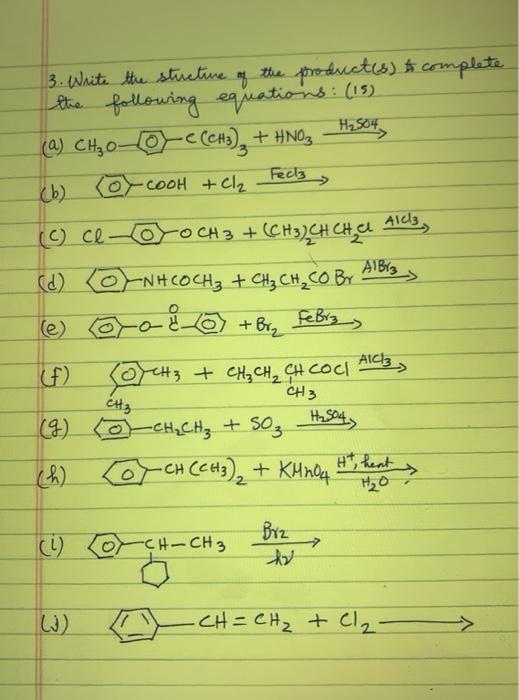 3. Write the structure of the product(s) to complete
the following equations: (15)
(a) CH3O-⌬-C(CH3)3 + HNO3 H2SO4→
(b) ⌬-COOH + Cl2 FeCl3→
(c) Cl-⌬-OCH3 + (CH3)2CHCH2Cl AlCl3→
(d) ⌬-NHCOCH3 + CH3CH2COBr AlBr3→
(e) ⌬-O-C(=O)-⌬ + Br2 FeBr3→
(f) ⌬-CH3 + CH3CH2CHCOCl AlCl3→
CH3 CH3
(g) ⌬-CH2CH3 + SO3 H2SO4→
(h) ⌬-CH(CH3)2 + KMnO4 H+, heat→
H2O
(i) ⌬-CH-CH3 Br2→
hν
(j) ⌬-CH=CH2 + Cl2→